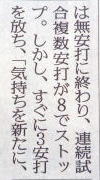 は無安打に終わり、連続試
合複数安打が８でストッ
プ。しかし、すぐに３安打
を放ち、「気持ちを新たに、